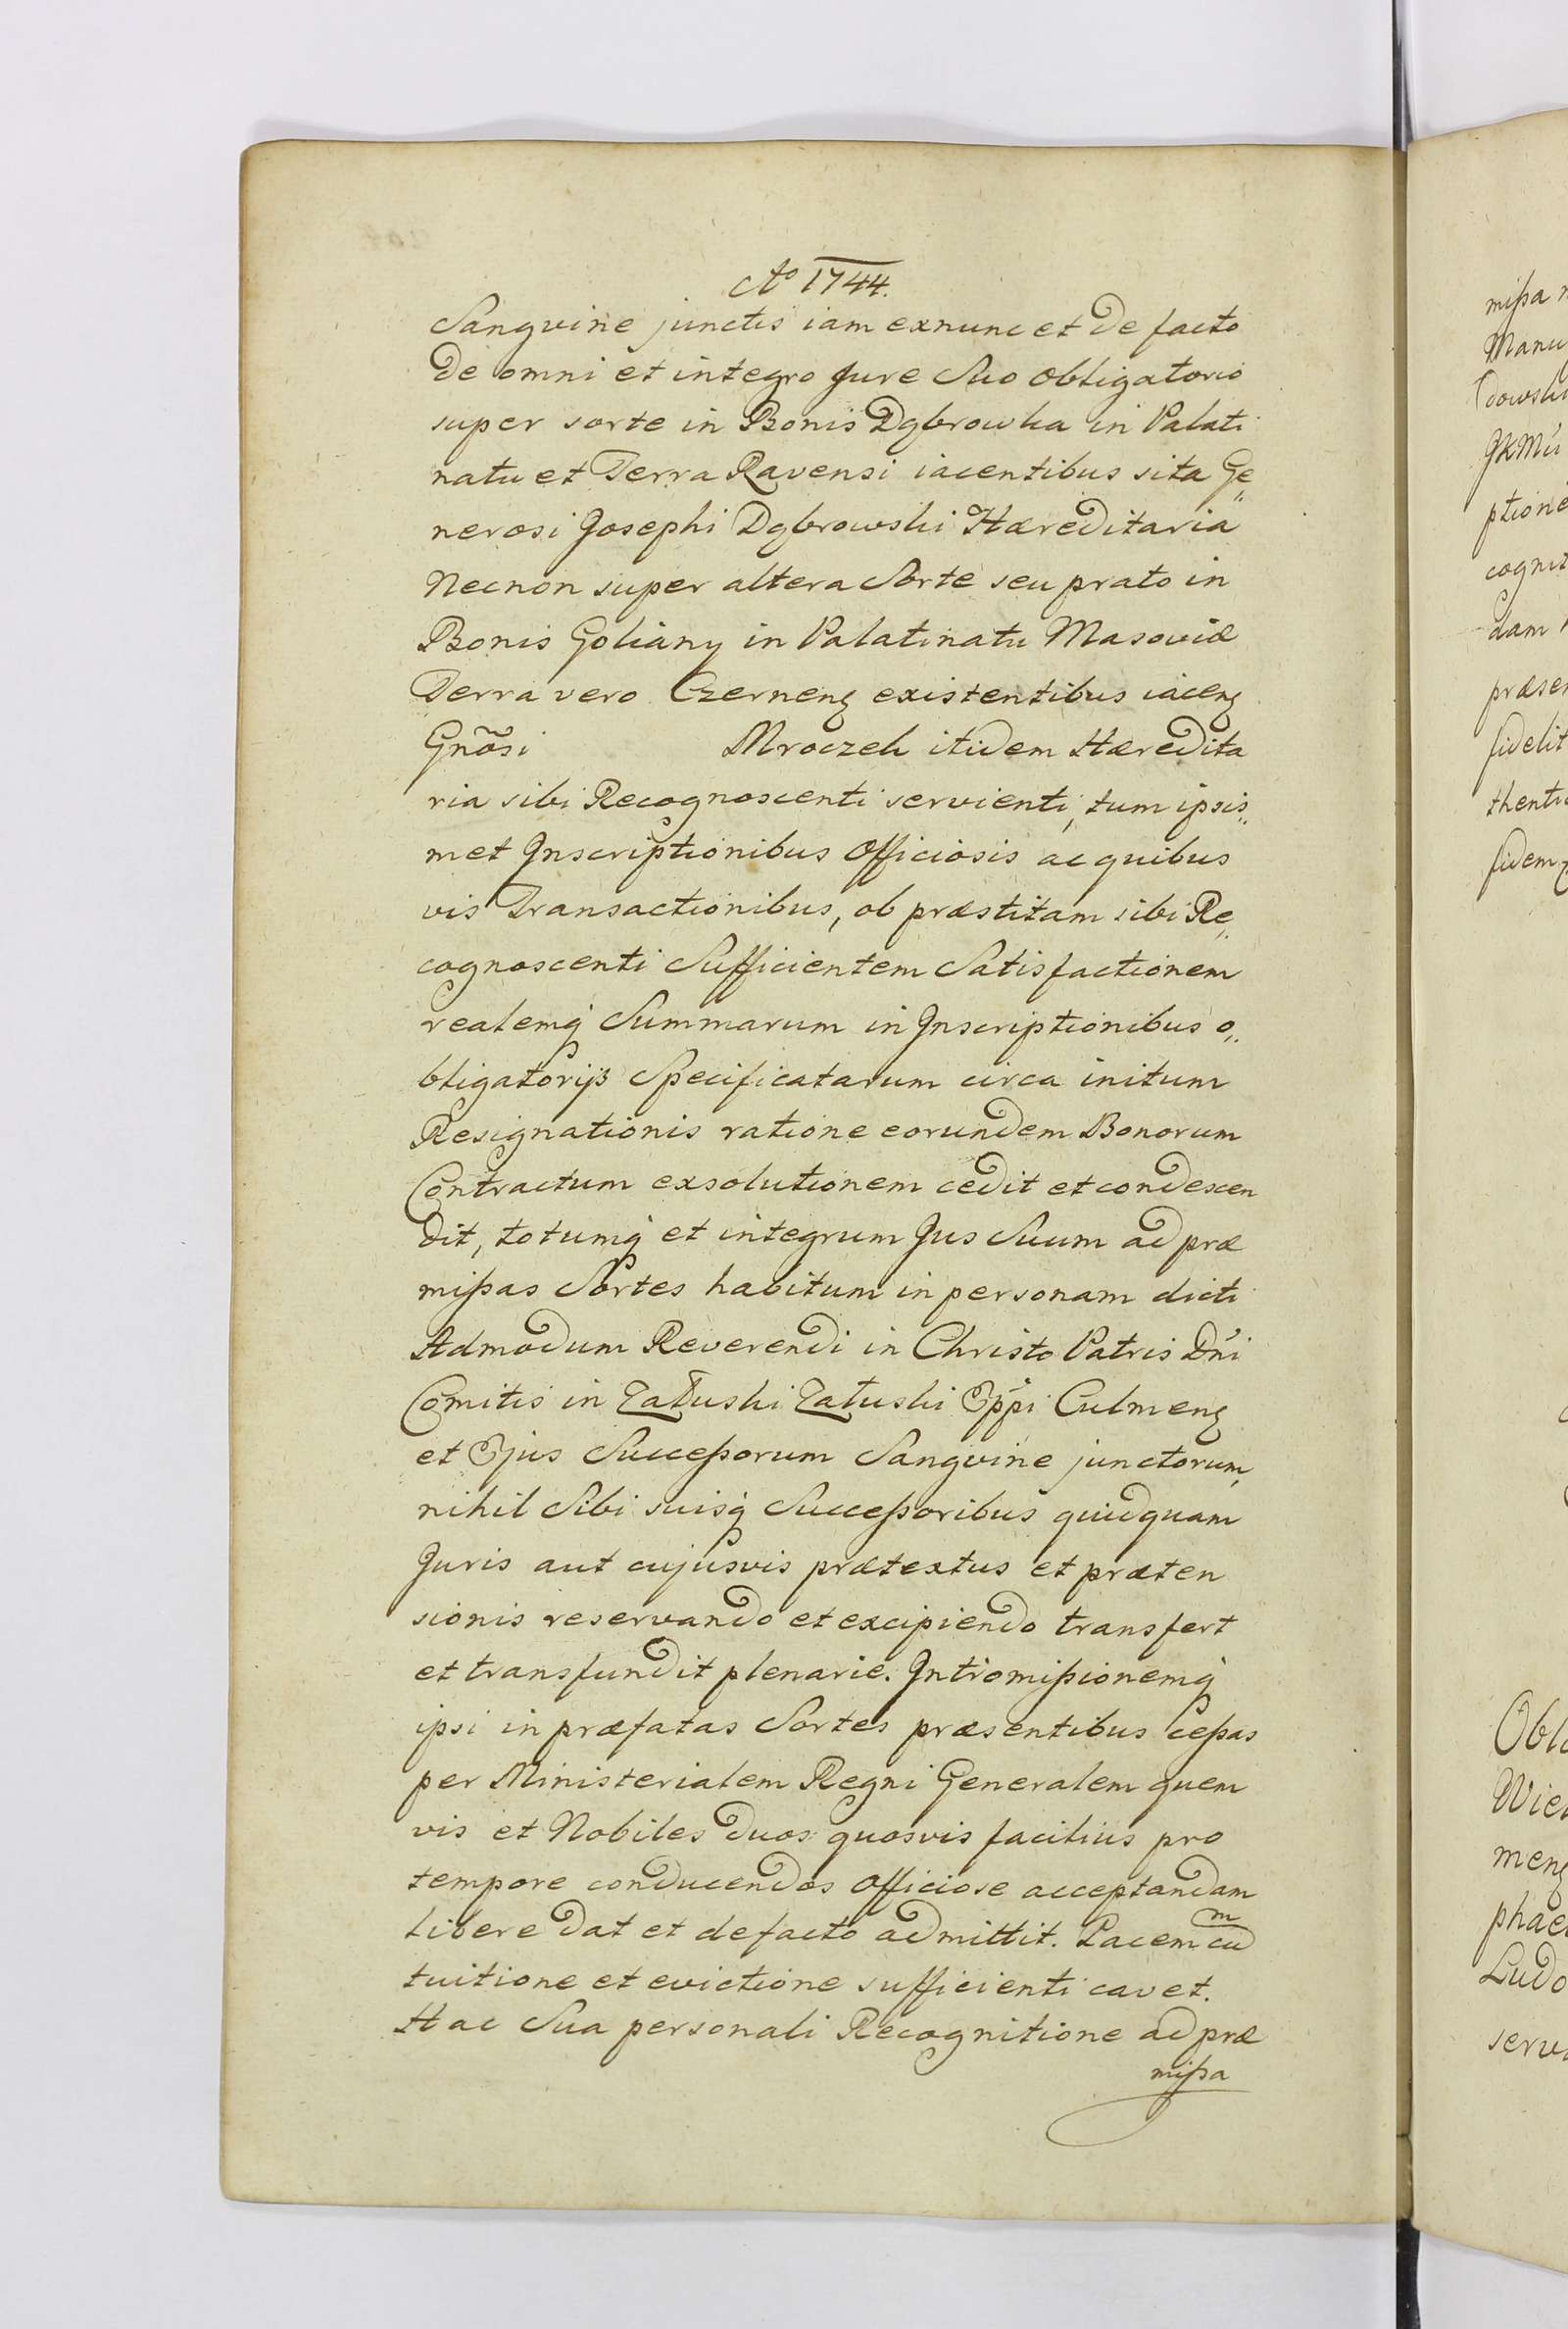 Ao 1744.
Sangvine junctis iam exnunc et de facto
de omni et integro Jure Suo obligatorio
super sorte in Bonis Dąbrowka in Palati
natu et Terra Ravensi iacentibus sita Ge„
nerosi Josephi Dąbrowski Hæreditaria
Necnon super altera Sorte seu prato in
Bonis Goliany in Palatinatu Masoviæ
Terra vero Czernenȝ existentibus iacenȝ
Gnõsi Mroczek itidem Hæredita
ria sibi Recognoscenti servienti, tum ipsis„
met Inscriptionibus Officiosis ac quibus
vis Transactionibus, ob præstitam sibi Re„
cognoscenti Sufficientem Satisfactionem
realemq́ Summarum in Inscriptionibus o„
bligatorijs Specificatarum circa initum
Resignationis ratione eorundem Bonorum
Contractum exsolutionem cedit et condescen
dit, totumq́ et integrum Jus Suum ad præ
mißas Sortes habitum in personam dicti
Admodum Reverendi in Christo Patris Dńi
Comitis in Załuski Załuski Eṕpi Culmenȝ
et Ejus Succeßorum Sangvine junctorum,
nihil Sibi suisq́ Succeßoribus quidquam
Juris aut cujusvis prætextus et præten
sionis reservando et excipiendo transfert
et transfundit plenarie. Intromißionemq́
ipsi in præfatas Sortes præsentibus ceßas
per Ministerialem Regni Generalem quem
vis et Nobiles duos quosvis facilius pro
tempore conducendos Officiose acceptandam
libere dat et defacto admittit. Pacem cūm
tuitione et evictione sufficienti cavet.
Hac Sua personali Recognitione ad præ
mißa
mißa
Manu
dowski
JKMći
ptione
cognit
dam
præsen
fidelit
thentic
fidem
Obla
Wiel
menȝ
phae
Ludo
serv